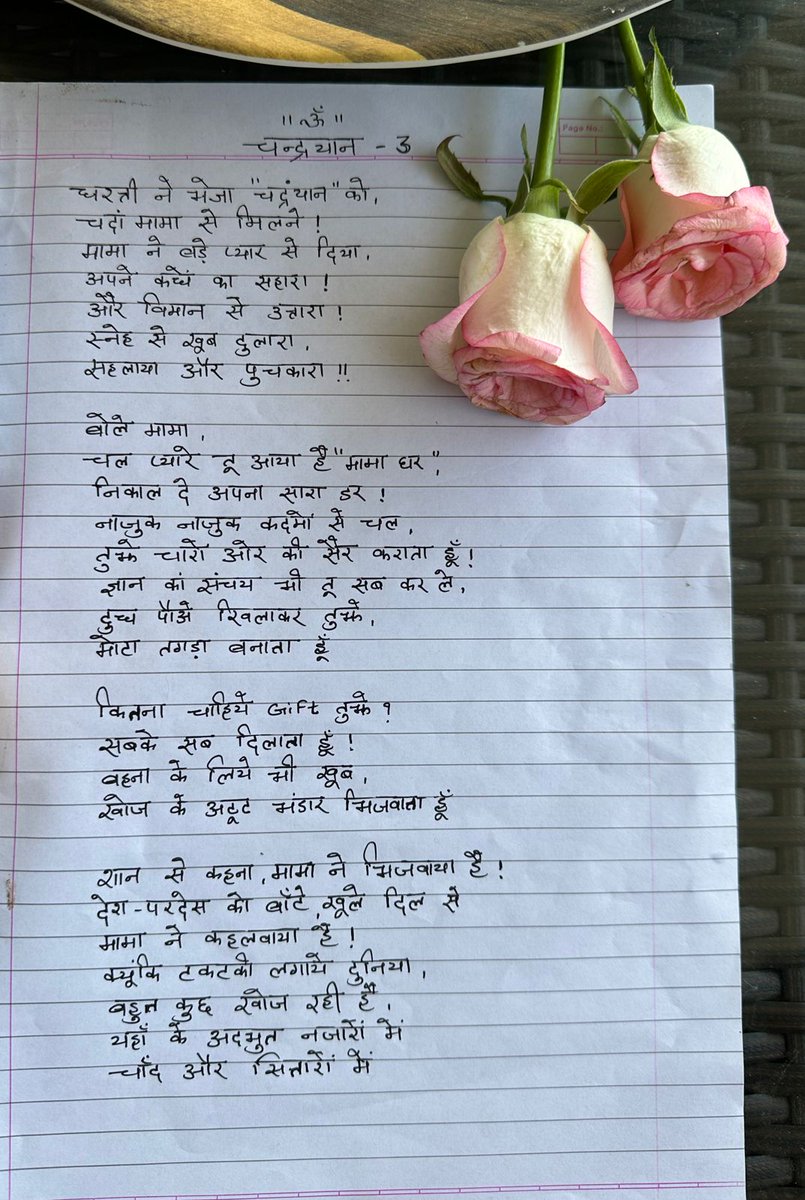 "ॐ"
चन्द्रयान - 3
Page No.:
धरती ने भेजा "चद्रंयान" को,
चदां मामा से मिलने !
मामा ने बड़े प्यार से दिया,
अपने कधें का सहारा !
और विमान से उतारा !
स्नेह से खूब दुलारा,
सहलाया और पुचकारा !!
बोले मामा,
चल प्यारे तू आया है "मामा घर",
निकाल दे अपना सारा डर !
नाजुक नाजुक कदमों से चल,
तुझे चारों ओर की सैर कराता हूँ !
ज्ञान कां संचय भी तू सब कर ले,
दुध पौअे खिलाकर तुझे,
मोटा तगड़ा बनाता हूँ
कितना चाहिये Gift तुझे ?
सबके सब दिलाता हूँ !
बहना के लिये भी खूब,
खोज के अटूट भंडार भिजवाता हूँ
शान से कहना, मामा ने भिजवाया है !
देश-परदेस को बाँटे, खूले दिल से
मामा ने कहलवाया है !
क्यूंकि टकटकी लगाये दुनिया,
बहुत कुछ खोज रही है,
यहाँ के अदभुत नजारों में
चाँद और सितारों में